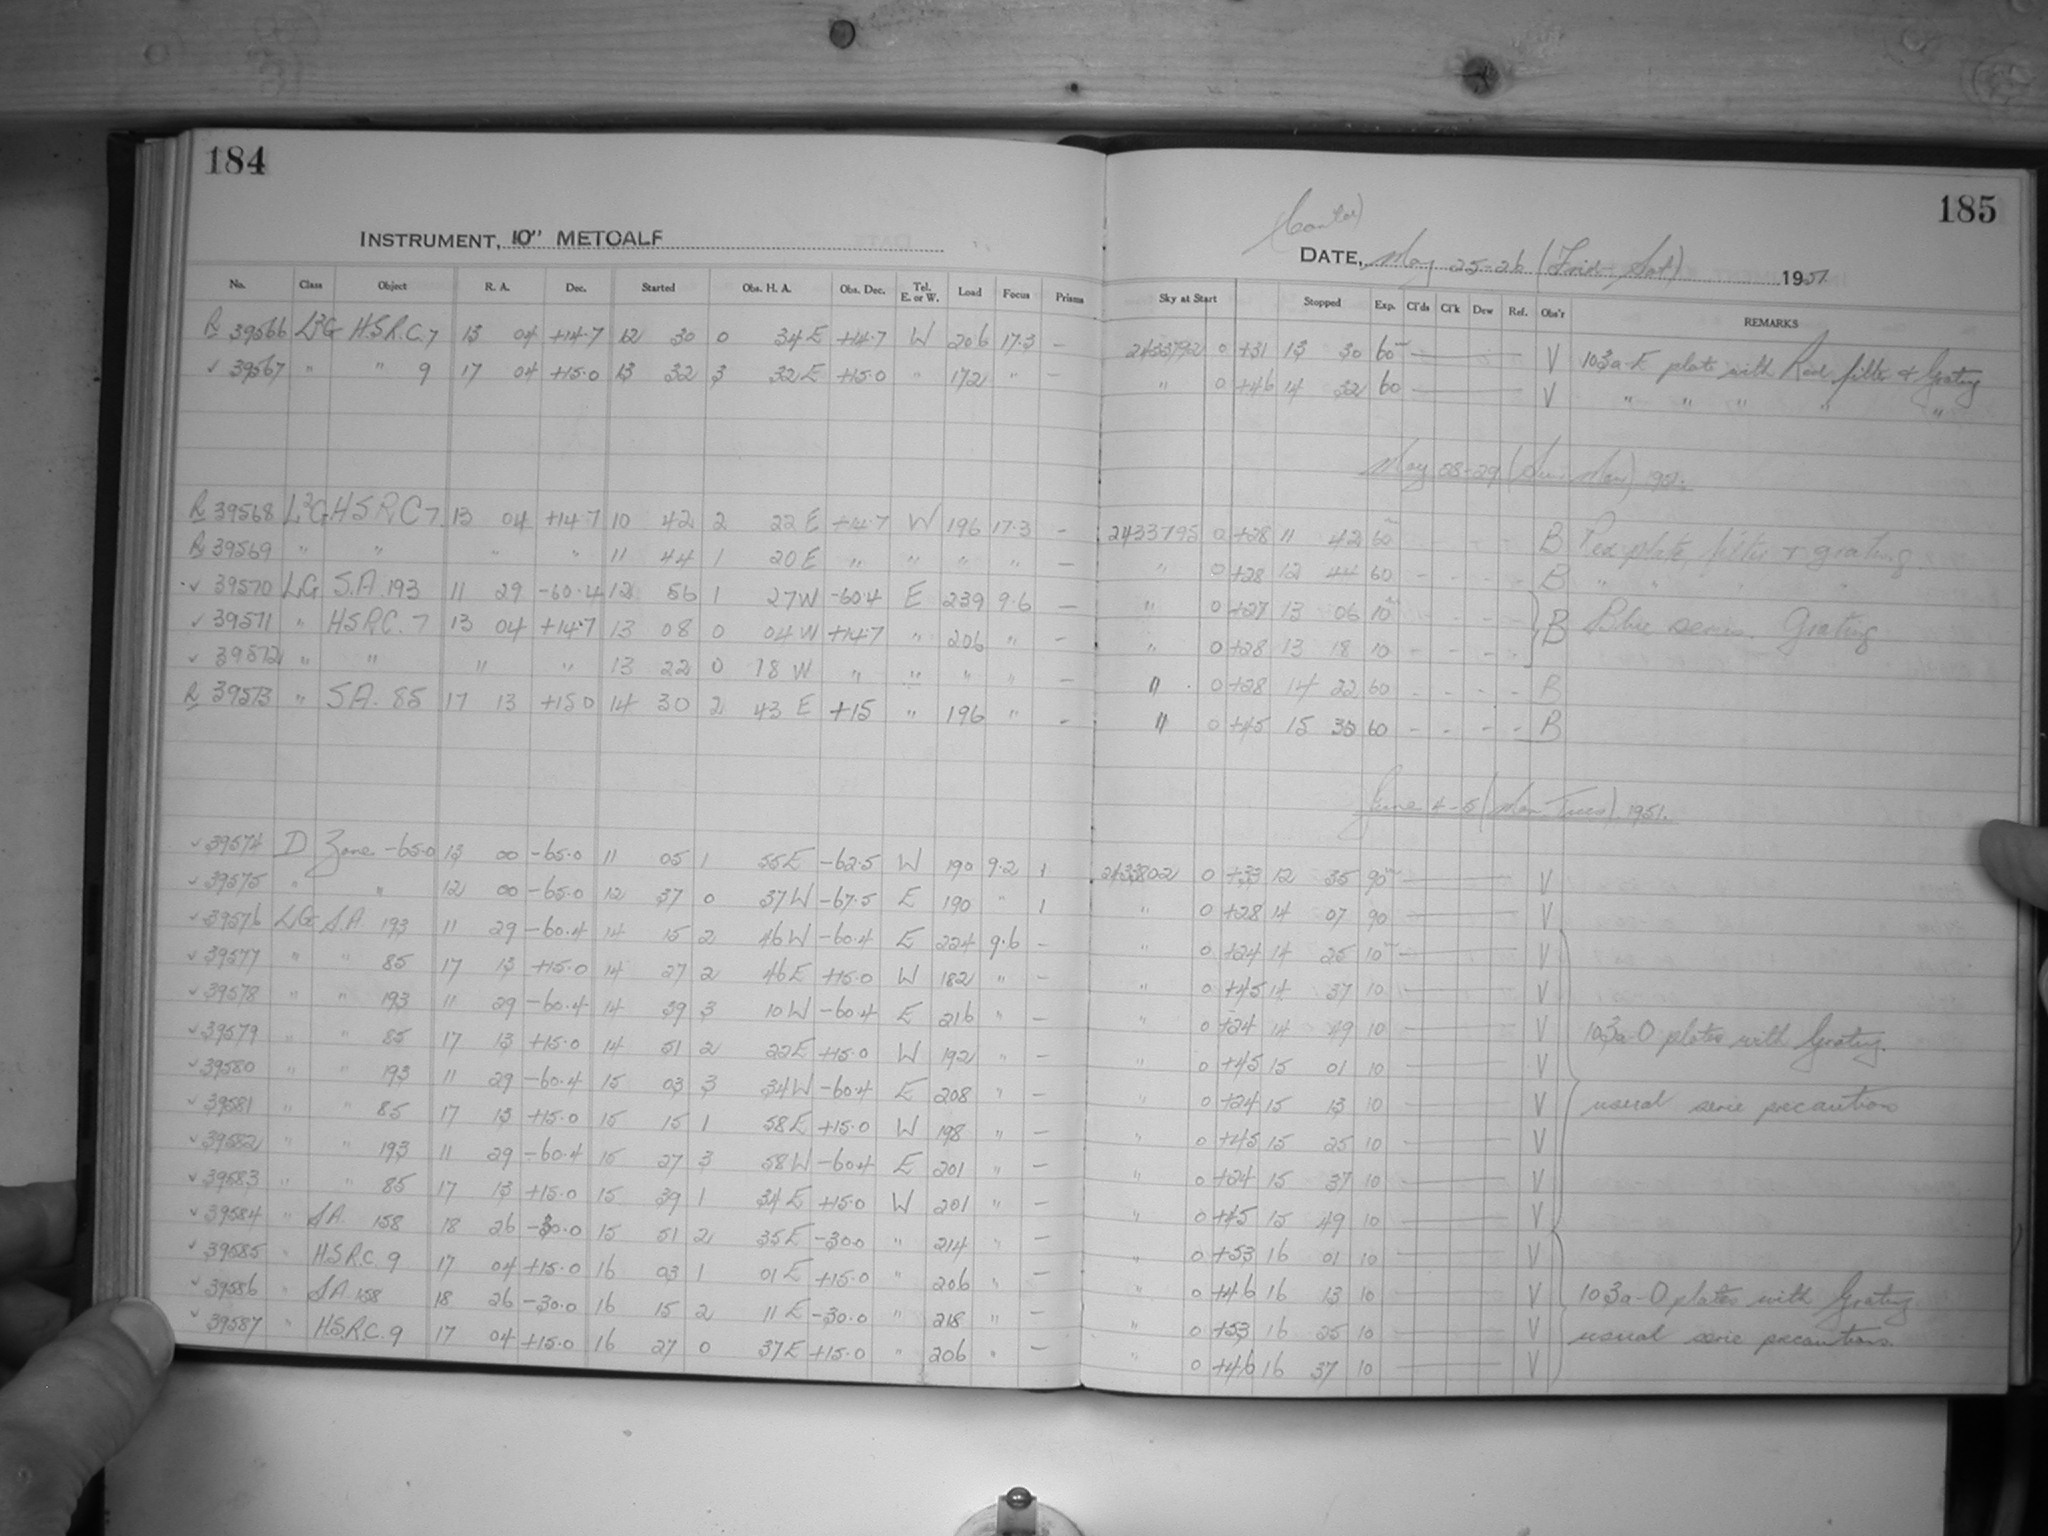 184
INSTRUMENT, 10" METCALF
No. Class Object R. A. Dec. Started Obs. H. A. Obs. Dec. Tel. E. or W. Load Focus Prisms
R 39566 L3G H.S.R.C. 7 13 04 +14.7 12 30 0 34 E +14.7 W 206 17.3 —
✓ 39567 " " 9 17 04 +15.0 13 32 3 32 E +15.0 " 172 " —
R 39568 L3G H.S.R.C 7 13 04 +14.7 10 42 2 22 E +14.7 W 196 17.3 —
R 39569 " " " " 11 44 1 20 E " " " " —
✓ 39570 LG S.A. 193 11 29 -60.4 12 56 1 27 W -60.4 E 239 9.6 —
✓ 39571 " H.S.R.C. 7 13 04 +14.7 13 08 0 04 W +14.7 " 206 " —
✓ 39572 " " " " 13 22 0 18 W " " " " —
R 39573 " S.A. 85 17 13 +15.0 14 30 2 43 E +15 " 196 " —
✓ 39574 D Zone -65.0 13 00 -65.0 11 05 1 55 E -62.5 W 190 9.2 1
✓ 39575 " " 12 00 -65.0 12 37 0 37 W -67.5 E 190 " 1
✓ 39576 LG S.A. 193 11 29 -60.4 14 15 2 46 W -60.4 E 224 9.6 —
✓ 39577 " " 85 17 13 +15.0 14 27 2 46 E +15.0 W 182 " —
✓ 39578 " " 193 11 29 -60.4 14 39 3 10 W -60.4 E 216 " —
✓ 39579 " " 85 17 13 +15.0 14 51 2 22 E +15.0 W 192 " —
✓ 39580 " " 193 11 29 -60.4 15 03 3 34 W -60.4 E 208 " —
✓ 39581 " " 85 17 13 +15.0 15 15 1 58 E +15.0 W 198 " —
✓ 39582 " " 193 11 29 -60.4 15 27 3 58 W -60.4 E 201 " —
✓ 39583 " " 85 17 13 +15.0 15 39 1 34 E +15.0 W 201 " —
✓ 39584 " S.A. 158 18 26 -30.0 15 51 2 35 E -30.0 " 214 " —
✓ 39585 " H.S.R.C. 9 17 04 +15.0 16 03 1 01 E +15.0 " 206 " —
✓ 39586 " S.A. 158 18 26 -30.0 16 15 2 11 E -30.0 " 218 " —
✓ 39587 " H.S.R.C. 9 17 04 +15.0 16 27 0 37 E +15.0 " 206 " —
185
DATE, May 25-26 (Frid - Sat) 1951.
Sky at Start Stopped Exp. Cl'ds Cl'k Dew Ref. Obs'r REMARKS
2433792 0 +31 13 30 60m V 103a-E plate with Red filter & Grating
" 0 +46 14 32 60 V " " " " "
May 28-29 1951.
2433795 0 +28 11 42 60m - - - - B Red plate, filter + grating
" 0 +28 12 44 60 - - - - B " "
" 0 +27 13 06 10m - - - - B Blue series. Grating
" 0 +28 13 18 10 - - - -
" 0 +28 14 22 60 - - - - B
" 0 +45 15 32 60 - - - - B
June 4-5 (Mon-Tues). 1951.
2433802 0 +33 12 35 90m V
" 0 +28 14 07 90 V
" 0 +24 14 25 10m V
" 0 +45 14 37 10 V
" 0 +24 14 49 10 V 103a-O plates with Grating.
" 0 +45 15 01 10 V
" 0 +24 15 13 10 V usual serie precautions
" 0 +45 15 25 10 V
" 0 +24 15 37 10 V
" 0 +45 15 49 10 V
" 0 +53 16 01 10 V
" 0 +46 16 13 10 V 103a-O plates with Grating
" 0 +53 16 25 10 V usual serie precautions.
" 0 +46 16 37 10 V